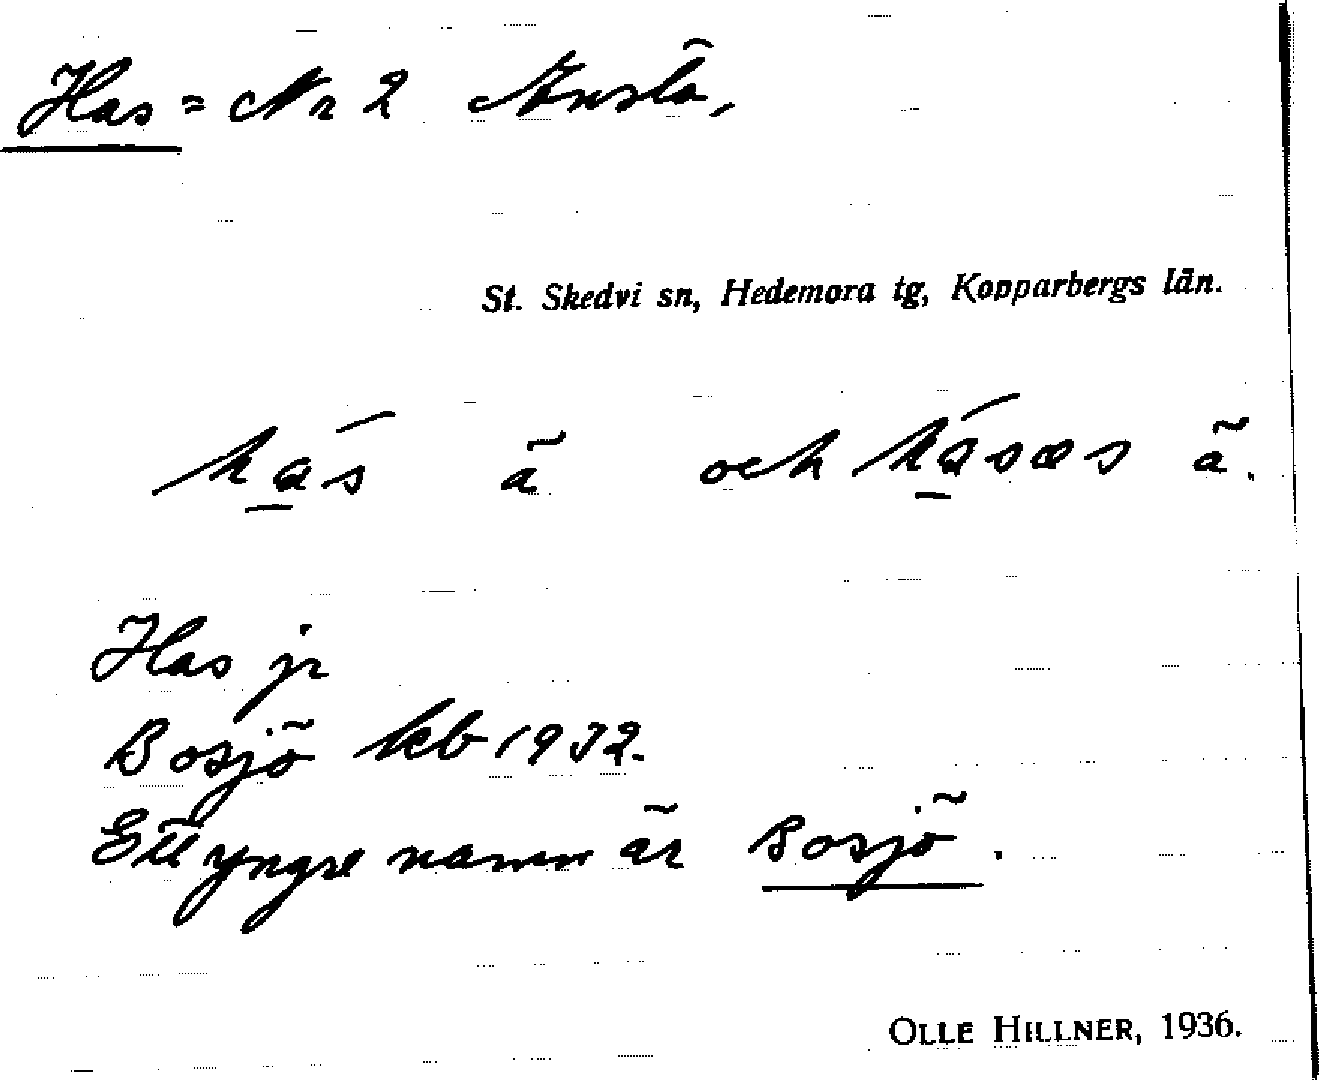 Has = Nr 2 Arnsta,
St. Skedvi sn, Hedemora tg, Kopparbergs län.
hás ä och hásæs ä.
Has jr
Bosjö kb 1932.
Ett yngre namn är Bosjö.
OLLE HILLNER, 1936.